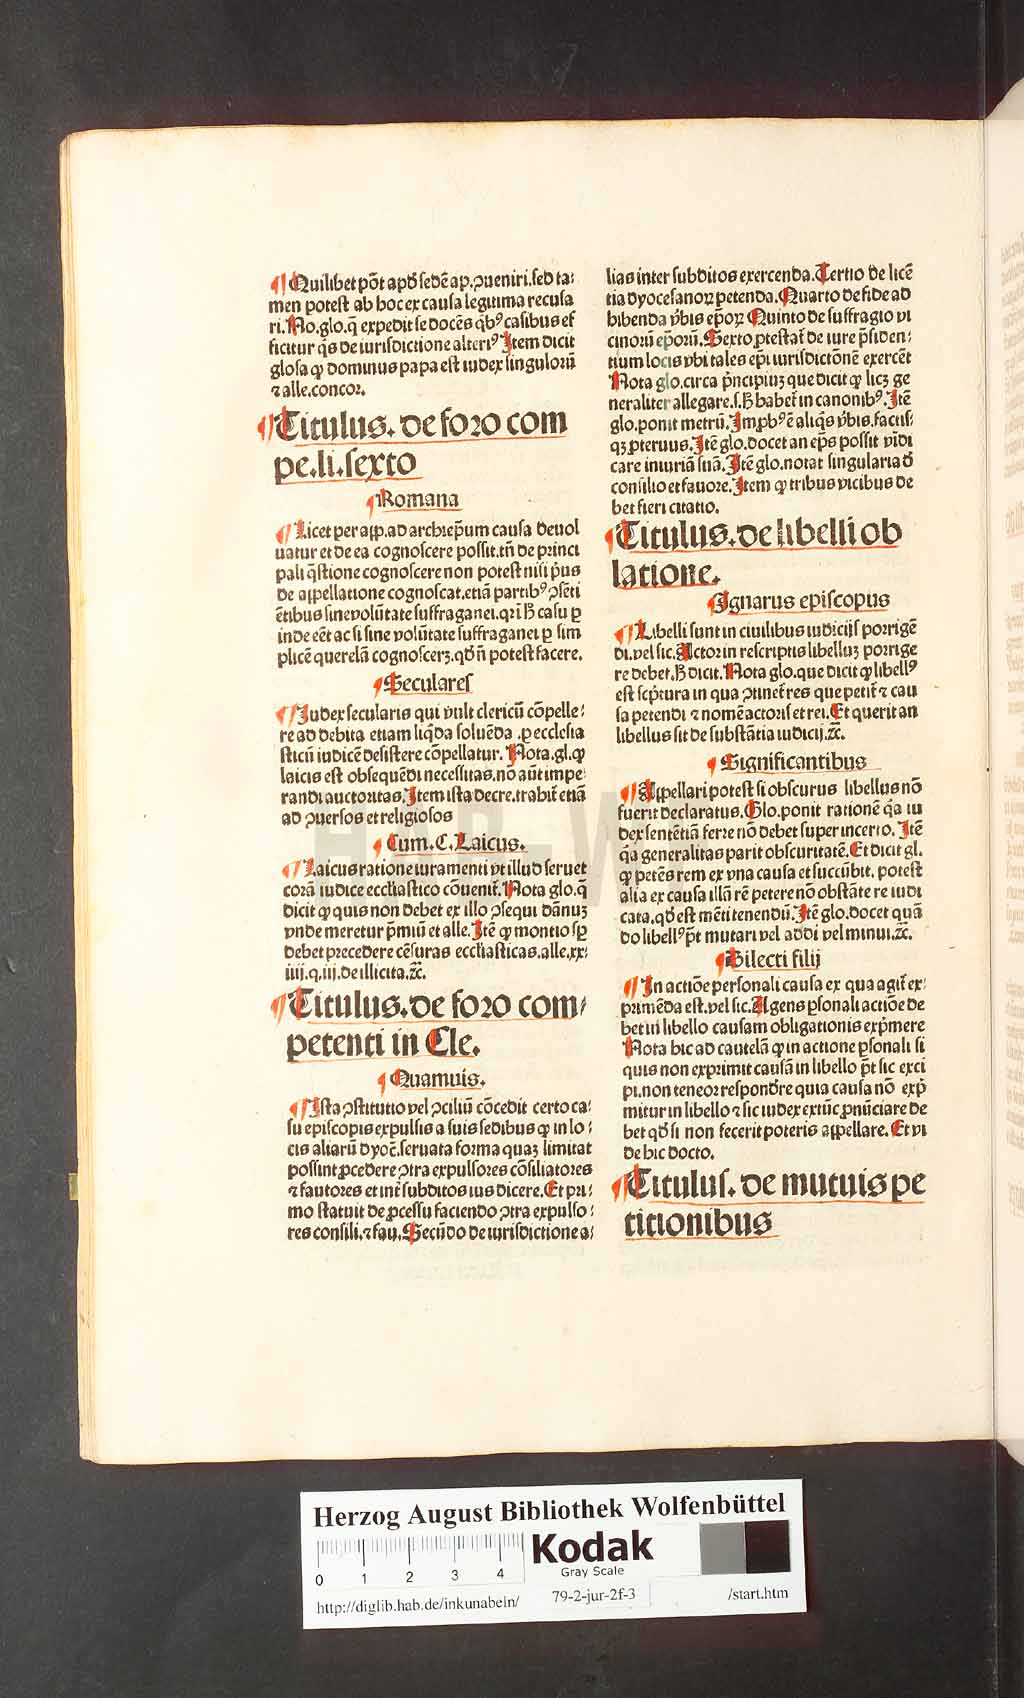 ¶ Quilibet pōt apd̄ sedē ap. ꝯueniri. sed ta⸗
men potest ab hoc ex causa legitima recusa
ri. No. glo. q̄ expedit se docēs q̄bꝰ casibus ef
ficitur q̄s de iurisdictione alteriꝰ Item dicit
glosa ꝙ dominus papa est iudex singulorū
⁊ alle. concor.
¶ Titulus. de foro com
pe. li. sexto
¶ Romana
¶ Licet per app. ad archiep̄um causa deuol
uatur et de ea cognoscere possit. tn̄ de princi
pali q̄stione cognoscere non potest nisi p̄us
de appellatione cognoscat. etiā partibꝰ ꝯsēti
ētibus sine volūtate suffraganei. qꝛ in hͦ casu ꝑ
inde eēt ac si sine volūtate suffraganei ꝑ sim
plicē querelā cognoscerꝫ. qd̄ n̄ potest facere.
¶ Seculares
¶ Iudex secularis qui vult clericū cōpelle⸗
re ad debita etiam liq̄da soluēda. ꝑ ecclesia
sticū iudicē desistere cōpellatur. Nota. gl. ꝙ
laicis est obsequēdi necessitas. nō aūt impe⸗
randi auctoritas. Item ista decre. trahit̄ etiā
ad ꝯuersos et religiosos
¶ Cum. C. Laicus.
¶ Laicus ratione iuramenti vt illud seruet
corā iudice eccliastico cōuenit̄. Nota glo. q̄
dicit ꝙ quis non debet ex illo ꝓsequi dānuꝫ
vnde meretur p̄miū et alle. Itē ꝙ monitio sp̄
debet precedere cēsuras eccliasticas. alle. xx⸗
iiij. q. iij. de illicita. ⁊c̄.
¶ Titulus. de foro com⸗
petenti in Cle.
¶ Quamuis.
¶ Ista ꝯstitutio vel ꝯciliū cōcedit certo ca⸗
su episcopis expulsis a suis sedibus ꝙ in lo⸗
cis aliarū dyoc̄. seruata forma quaꝫ limitat
possint ꝓcedere ꝯtra expulsores cōsiliatores
⁊ fautores et int̄ subditos ius dicere. Et pri⸗
mo statuit de ꝓcessu faciendo ꝯtra expulso⸗
res consili. ⁊ fau. Secūdo de iurisdictione a⸗
lias inter subditos exercenda. Tertio de licē
tia dyocesanoꝝ petenda. Quarto de fide ad
hibenda v̄bis ep̄oꝝ Quinto de suffragio vi
cinorū ep̄orū. Sexto ꝓtestat̄ de iure p̄siden⸗
tium locis vbi tales ep̄i iurisdictōnē exercēt
Nota glo. circa p̄ncipiuꝫ que dicit ꝙ licꝫ ge
neraliter allegare. s. hͦ habet̄ in canonibꝰ. Itē
glo. ponit metrū. Imp̄bꝰ ē aliq̄s v̄bis. factis⸗
qꝫ ꝓteruus. Itē glo. docet an ep̄s possit vīdi
care iniuriā suā. Itē glo. notat singularia d̄
consilio et fauore. Item ꝙ tribus vicibus de
bet fieri citatio.
¶ Titulus. de libelli ob
latione.
¶ Ignarus episcopus
¶ Libelli sunt in ciuilibus iudicijs porrigē
di. vel sic. Actor in rescriptis libelluꝫ porrige
re debet. hͦ dicit. Nota glo. que dicit ꝙ libellꝰ
est scp̄tura in qua ꝯtinet̄ res que petit̄ ⁊ cau
sa petendi ⁊ nomē actoris et rei. Et querit an
libellus sit de substātia iudicij. ⁊c̄.
¶ Significantibus
¶ Appellari potest si obscurus libellus nō
fuerit declaratus. Glo. ponit rationē q̄a iu
dex sententiā ferre nō debet super incerto. Itē
q̄a generalitas parit obscuritatē. Et dicit gl.
ꝙ petēs rem ex vna causa et succūbit. potest
alia ex causa illā rē petere nō obstāte re iudi
cata. qd̄ est mēti tenendū. Itē glo. docet quā
do libellꝰ pt̄ mutari vel addi vel minui. ⁊c̄.
¶ Dilecti filij
¶ In actiōe personali causa ex qua agit̄ ex⸗
primēda est. vel sic. Agens ꝑsonali actiōe de
bet in libello causam obligationis exp̄mere
Nota hic ad cautelā ꝙ in actione ꝑsonali si
quis non exprimit causā in libello pt̄ sic exci
pi. non teneor respondēre quia causa nō exp̄
mitur in libello ⁊ sic iudex extūc ꝓnūciare de
bet qd̄ si non fecerit poteris appellare. Et vi
de hic docto.
¶ Titulus. de mutuis pe
titionibus
HAB-WF
Herzog August Bibliothek Wolfenbüttel
0 1 2 3 4
Kodak
Gray Scale
http://diglib.hab.de/inkunabeln/ 79-2-jur-2f-3 /start.htm